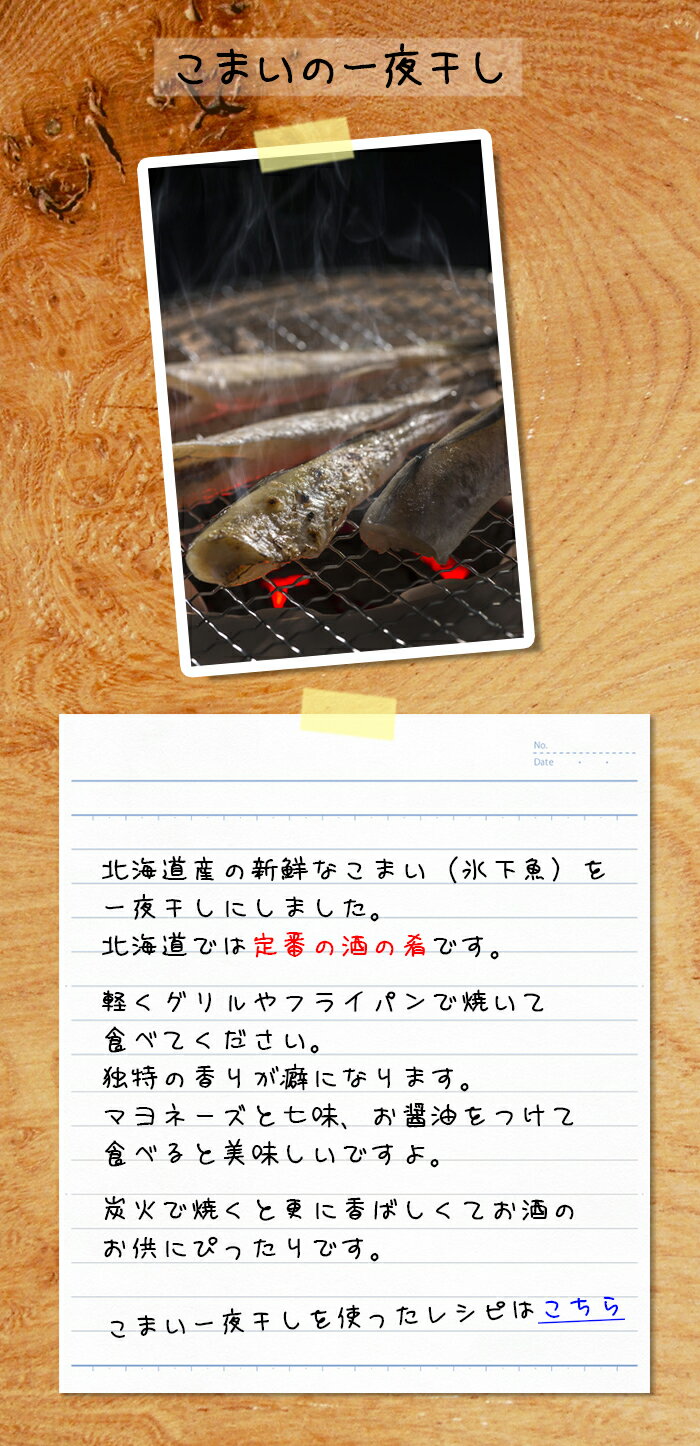 こまいの一夜干し
No.
Date ・ ・
北海道産の新鮮なこまい（氷下魚）を
一夜干しにしました。
北海道では定番の酒の肴です。
軽くグリルやフライパンで焼いて
食べてください。
独特の香りが癖になります。
マヨネーズと七味、お醤油をつけて
食べると美味しいですよ。
炭火で焼くと更に香ばしくてお酒の
お供にぴったりです。
こまい一夜干しを使ったレシピはこちら